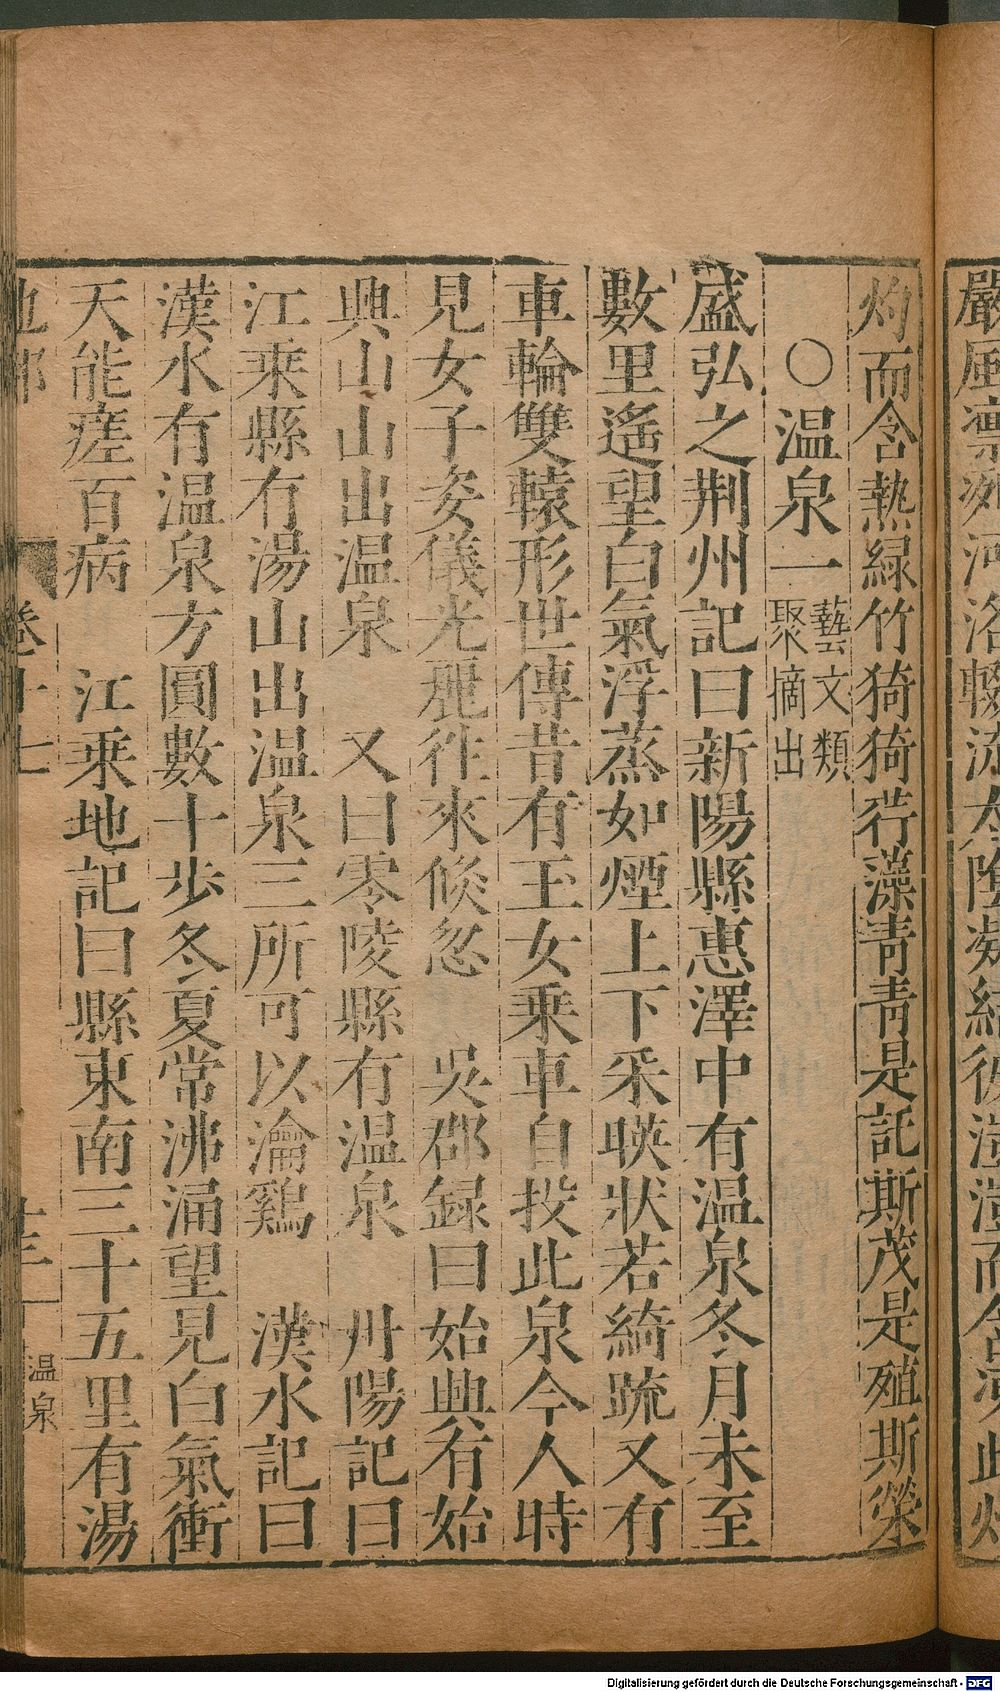 灼而含熱緑竹猗猗荇藻青青是託斯茂是殖斯榮
〇温泉一 藝文類聚摘出
盛弘之荆州記曰新陽縣惠澤中有温泉冬月未至
數里遙望白氣浮蒸如煙上下采暎狀若綺疏又有
車輪雙轅形世傳昔有玉女乗車自投此泉今人時
見女子姿儀光麗徃來倐忽 吳郡録曰始興有始
興山山出温泉 又曰零陵縣有温泉 丹陽記曰
江乘縣有湯山出温泉三所可以瀹鷄 漢水記曰
漢水有温泉方圓數十步冬夏常沸涌望見白氣衝
天能瘥百病 江乗地記曰縣東南三十五里有湯
卷十七
温泉
Digitalisierung gefördert durch die Deutsche Forschungsgemeinschaft - DFG